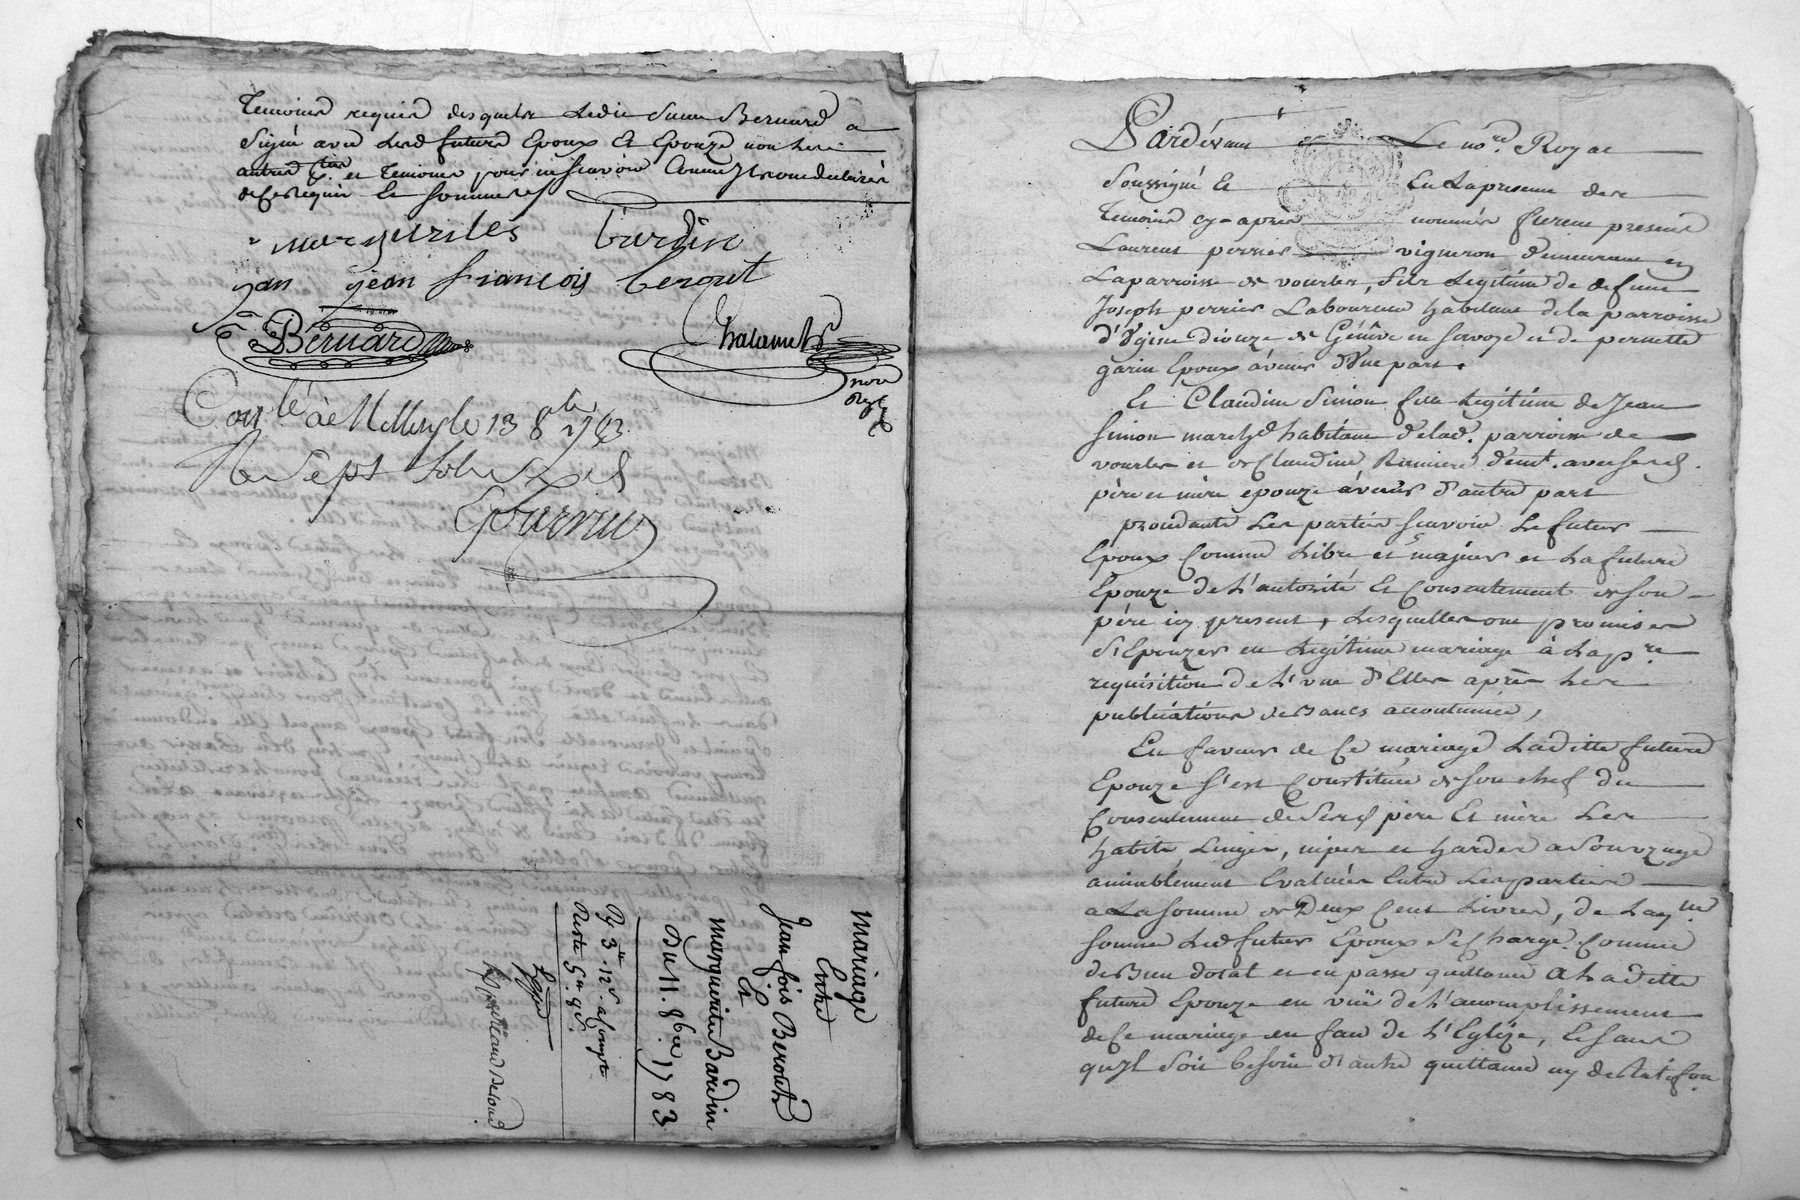 Temoins requis desquels Ledit Sieur Bernard a
signé avec Lesd. futurs Epoux Et Epouze non Les
autres pties. et Temoins pour ne scavoir Comme Ils ont declarés
de Ce Requis Et sommés
marguerites bardin
jean françois berout
Bernard Chalamel
nore
Royal
Conlé à Millery le 13 8bre 1783
Rx sept sols six d
mariage
Entre
Jean fois Berout
Et
marguerite Bardin
Du 11. 8bre. 1783
Pardevant Le nore. Royal
Soussigné Et En La presence des
Temoins cy-apres nommés furent presens
Laurent perrier vigneron demeurant en
La parroisse de vourles, fils Legitime de defunt
Joseph perrier Laboureur habitant de la parroisse
diouze de Génêve en Savoye et de pernette
garin Epoux àvenir d'Une part.
Et Claudine Simon fille Legitime de Jean
Simon marchd habitant delad. parroisse de
vourles et de Claudine demt. avec sesd.
père et mère epouze àvenir d'autre part
procedants Les parties scavoir Le futur
Epoux Comme Libre et majeur et La future
Epouze de L'autorité Et Consentement de son
père icy present, Lesquelles ont promis
s'Epouzer en Legitime mariage à La pre.
requisition de L'une d'Elles après Les
publications de Bancs accoutumées,
En faveur de Ce mariage Laditte future
Epouze s'est Constituée de son chef du
Consentement de Sesd père Et mère Les
habits Linges, nipes et hardes a Son uzage
amiablement Evaluées Entre Les parties
a La somme de Deux Cent Livres, de Laqlle
somme Led futur Epoux se Charge Comme
de Bien dotal et en passe quittance a Laditte
future Epouze en vuë de L'accomplissement
de Ce mariage en face de L'Eglize, Et sans
qu'Il soit besoin d'autre quittance ny de